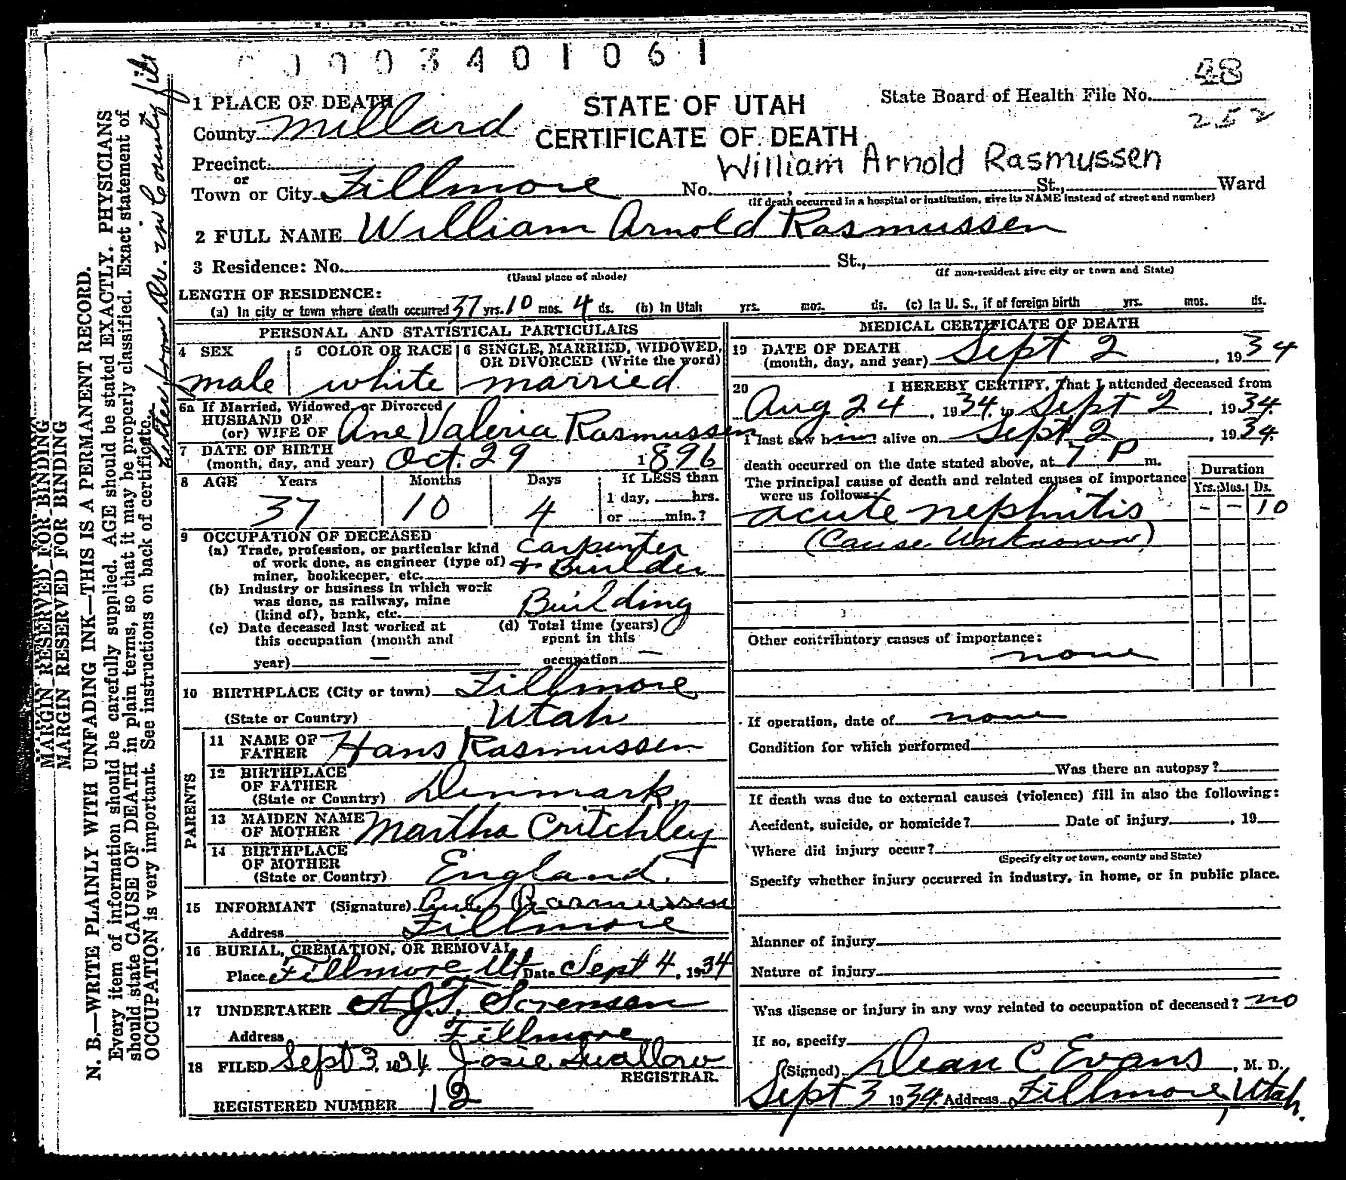 0003401061
48
1 PLACE OF DEATH
County Millard
STATE OF UTAH
CERTIFICATE OF DEATH
State Board of Health File No.
252
Precinct
or
Town or City Fillmore No. , St., Ward
William Arnold Rasmussen
(If death occurred in a hospital or institution, give its NAME instead of street and number)
2 FULL NAME William Arnold Rasmussen
3 Residence: No. St.,
(Usual place of abode) (If non-resident give city or town and State)
LENGTH OF RESIDENCE:
(a) In city or town where death occurred 37 yrs. 10 mos. 4 ds. (b) In Utah yrs. mos. ds. (c) In U. S., if of foreign birth yrs. mos. ds.
PERSONAL AND STATISTICAL PARTICULARS
4 SEX male
5 COLOR OR RACE white
6 SINGLE, MARRIED, WIDOWED, OR DIVORCED (Write the word) married
6a If Married, Widowed or Divorced
HUSBAND OF
(or) WIFE OF Ane Valeria Rasmussen
7 DATE OF BIRTH
(month, day, and year) Oct. 29 1896
8 AGE Years Months Days If LESS than
37 10 4 1 day, hrs.
or min.?
9 OCCUPATION OF DECEASED
(a) Trade, profession, or particular kind of work done, as engineer (type of) miner, bookkeeper, etc. Carpenter + Builder
(b) Industry or business in which work was done, as railway, mine (kind of), bank, etc. Building
(c) Date deceased last worked at this occupation (month and year) —
(d) Total time (years) spent in this occupation —
10 BIRTHPLACE (City or town) Fillmore
(State or Country) Utah
PARENTS
11 NAME OF FATHER Hans Rasmussen
12 BIRTHPLACE OF FATHER
(State or Country) Denmark
13 MAIDEN NAME OF MOTHER Martha Critchley
14 BIRTHPLACE OF MOTHER
(State or Country) England.
15 INFORMANT (Signature) Rasmussen
Address Fillmore
16 BURIAL, CREMATION, OR REMOVAL
Place Fillmore, Ut Date Sept 4, 1934
17 UNDERTAKER A.J.T. Sorensen
Address Fillmore
18 FILED Sept 3, 1934 Josie Swallow
REGISTRAR.
REGISTERED NUMBER 12
MEDICAL CERTIFICATE OF DEATH
19 DATE OF DEATH
(month, day, and year) Sept 2, 1934
20 I HEREBY CERTIFY, That I attended deceased from
Aug 24, 1934 to Sept 2, 1934.
I last saw him alive on Sept 2, 1934.
death occurred on the date stated above, at 7 P m.
The principal cause of death and related causes of importance
were us follows:
Duration
Yrs. Mos. Ds.
acute nephritis - - 10
(Cause Unknown)
Other contributory causes of importance:
none
If operation, date of none
Condition for which performed
Was there an autopsy?
If death was due to external causes (violence) fill in also the following:
Accident, suicide, or homicide? Date of injury , 19
Where did injury occur?
(Specify city or town, county and State)
Specify whether injury occurred in industry, in home, or in public place.
Manner of injury
Nature of injury
Was disease or injury in any way related to occupation of deceased? no
If so, specify
(Signed) Dean C Evans, M. D.
Sept 3 1934 Address Fillmore, Utah.
MARGIN RESERVED FOR BINDING
MARGIN RESERVED FOR BINDING
N. B.—WRITE PLAINLY WITH UNFADING INK—THIS IS A PERMANENT RECORD.
Every item of information should be carefully supplied. AGE should be stated EXACTLY. PHYSICIANS
should state CAUSE OF DEATH in plain terms, so that it may be properly classified. Exact statement of
OCCUPATION is very important. See instructions on back of certificate.
in County file